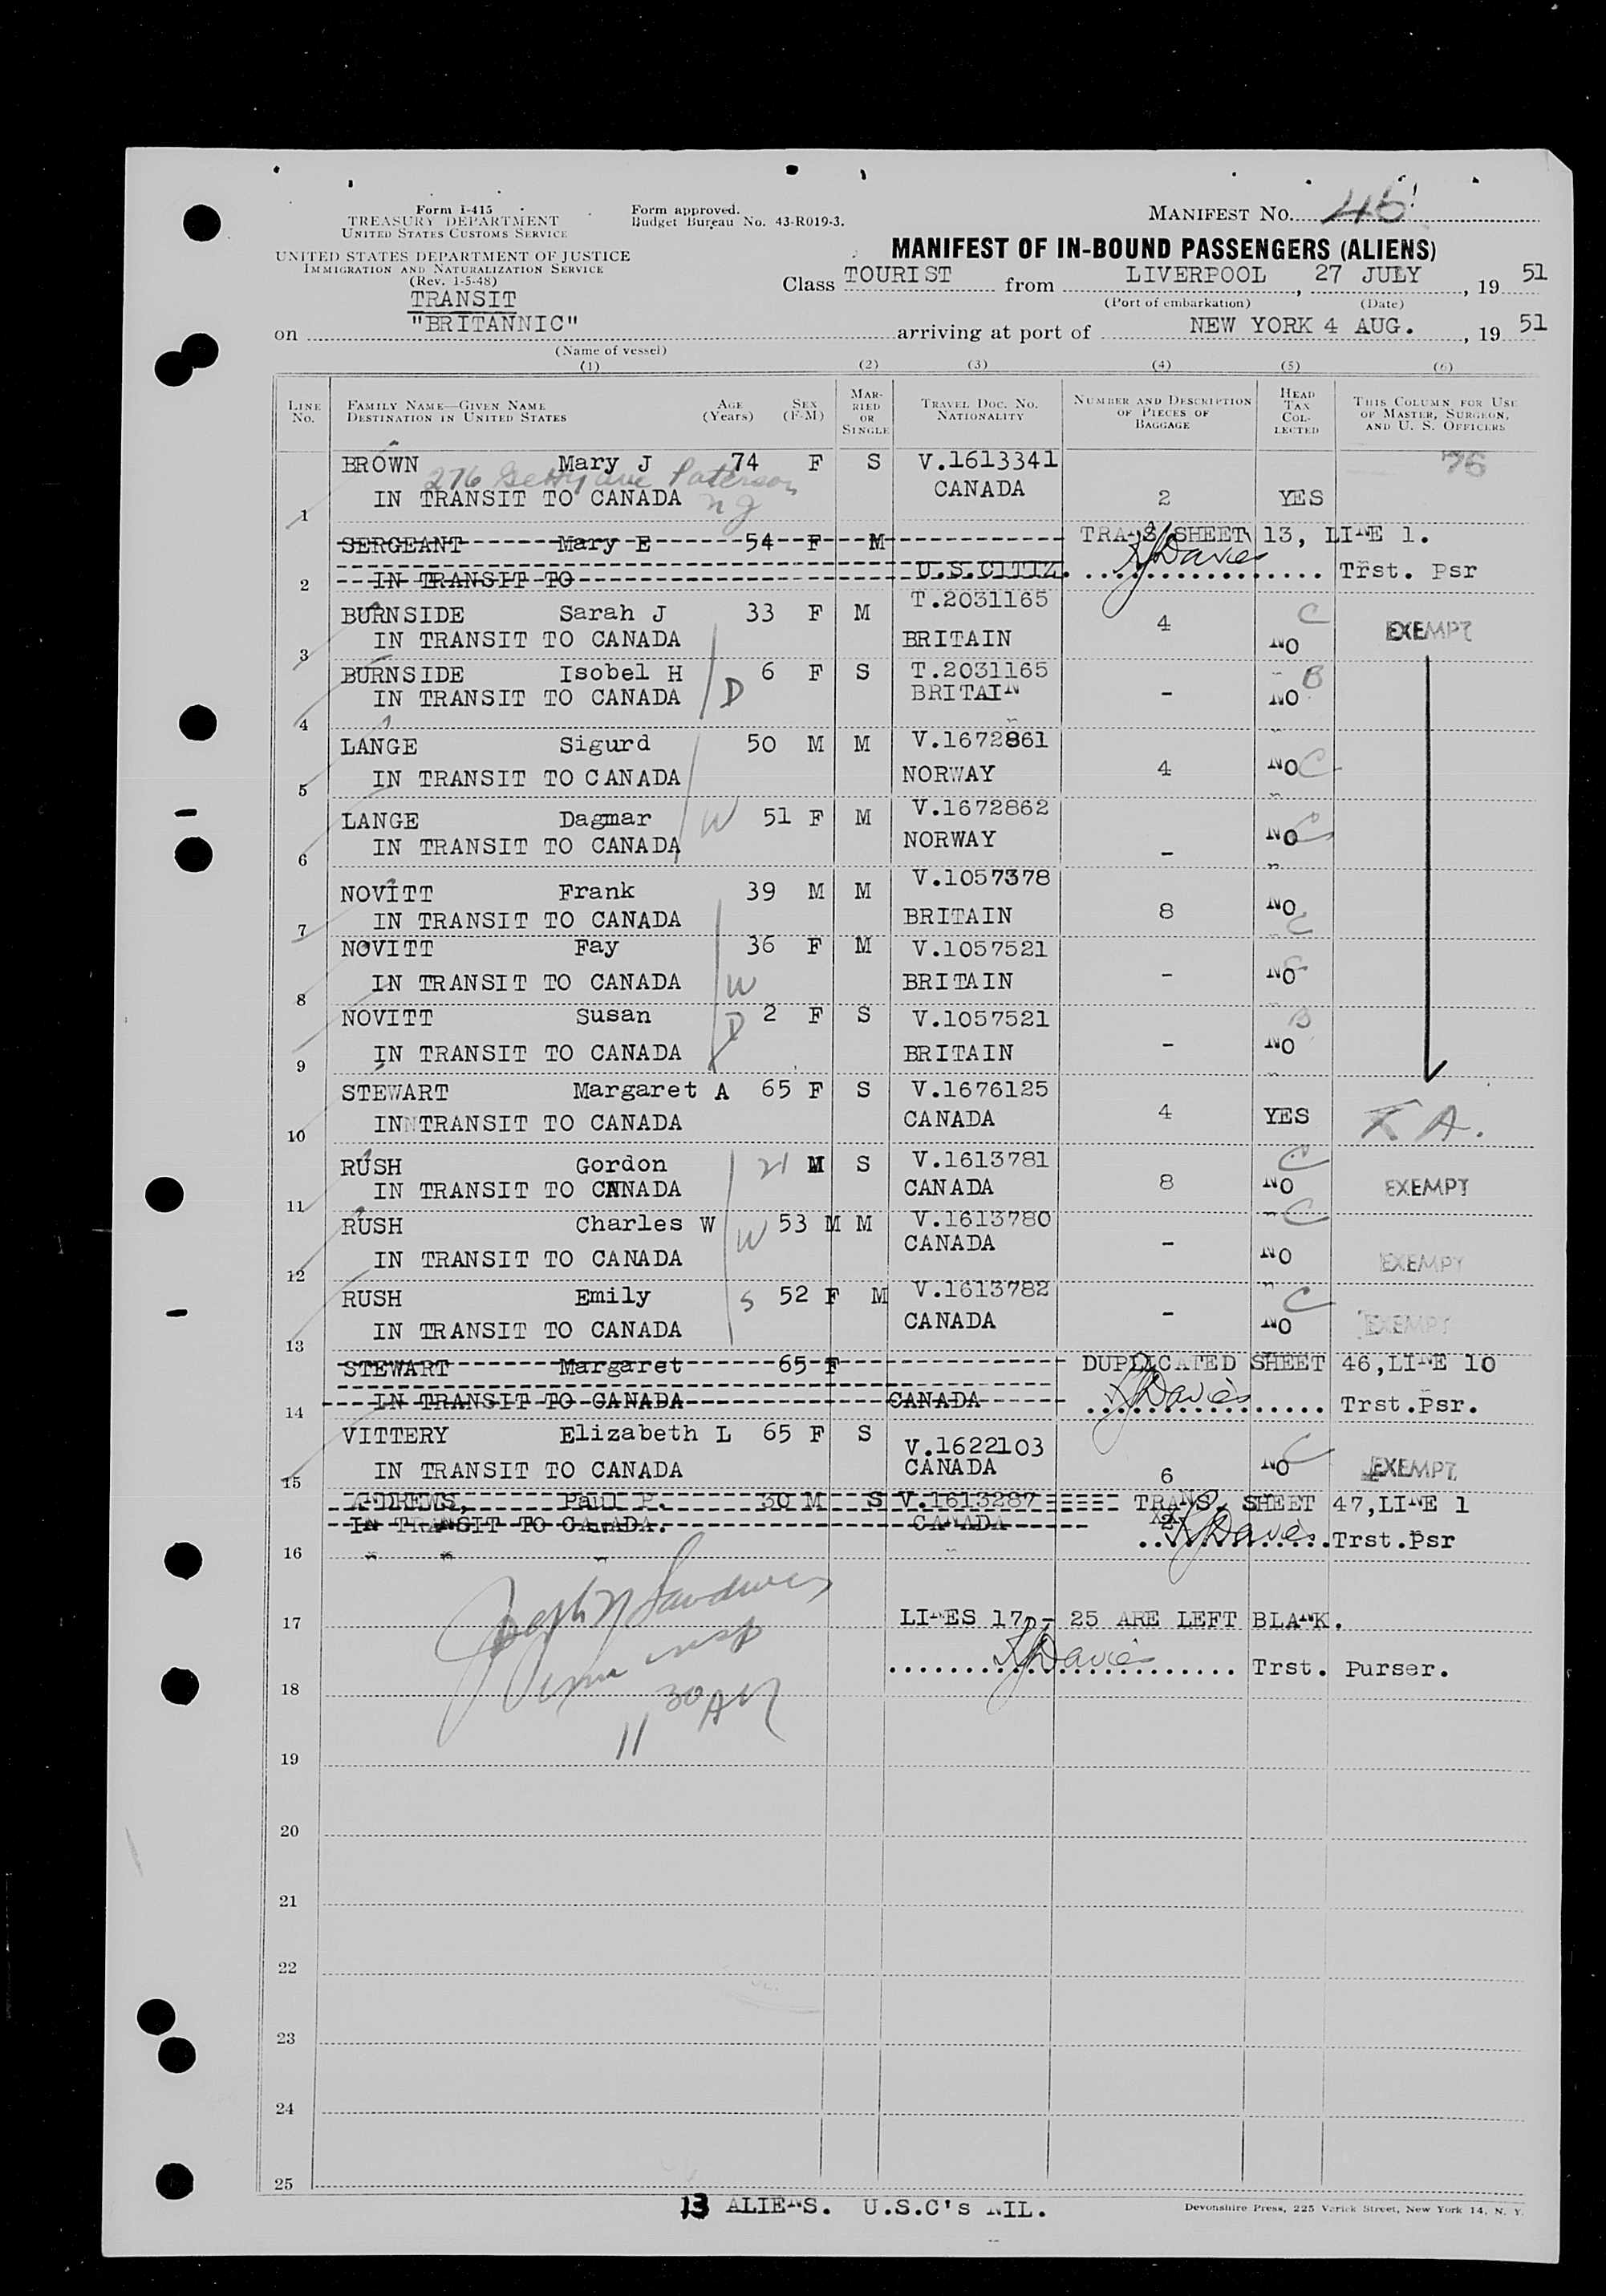 Form I-415
TREASURY DEPARTMENT
UNITED STATES CUSTOMS SERVICE
UNITED STATES DEPARTMENT OF JUSTICE
IMMIGRATION AND NATURALIZATION SERVICE
(Rev. 1-5-48)
TRANSIT
Form approved.
Budget Bureau No. 43-R019-3.
MANIFEST NO. 46
MANIFEST OF IN-BOUND PASSENGERS (ALIENS)
Class TOURIST from LIVERPOOL, 27 JULY, 19 51
(Port of embarkation) (Date)
on "BRITANNIC" arriving at port of NEW YORK 4 AUG., 19 51
(Name of vessel)
(1) (2) (3) (4) (5) (6)
LINE NO.
FAMILY NAME—GIVEN NAME
DESTINATION IN UNITED STATES
AGE (Years)
SEX (F-M)
MARRIED OR SINGLE
TRAVEL DOC. NO. NATIONALITY
NUMBER AND DESCRIPTION OF PIECES OF BAGGAGE
HEAD TAX COLLECTED
THIS COLUMN FOR USE OF MASTER, SURGEON, AND U. S. OFFICERS
BROWN Mary J 74 F S V.1613341 76
276 Getty ave Paterson
1 IN TRANSIT TO CANADA NJ CANADA 2 YES
SERGEANT Mary E 54 F M TRANS SHEET 13, LINE 1.
2 IN TRANSIT TO U.S.CITIZ. KJDavies Trst. Psr
BURNSIDE Sarah J 33 F M T.2031165 4 C EXEMPT
3 IN TRANSIT TO CANADA BRITAIN NO
BURNSIDE Isobel H 6 F S T.2031165 B
4 IN TRANSIT TO CANADA D BRITAIN - NO
LANGE Sigurd 50 M M V.1672861
5 IN TRANSIT TO CANADA NORWAY 4 NO C
LANGE Dagmar W 51 F M V.1672862
6 IN TRANSIT TO CANADA NORWAY - NO C
NOVITT Frank 39 M M V.1057378
7 IN TRANSIT TO CANADA BRITAIN 8 NO C
NOVITT Fay 36 F M V.1057521
8 IN TRANSIT TO CANADA W BRITAIN - NO C
NOVITT Susan D 2 F S V.1057521 B
9 IN TRANSIT TO CANADA BRITAIN - NO
STEWART Margaret A 65 F S V.1676125
10 INNTRANSIT TO CANADA CANADA 4 YES T A.
RUSH Gordon 21 M S V.1613781 C
11 IN TRANSIT TO CANNADA CANADA 8 NO EXEMPT
RUSH Charles W W 53 M M V.1613780 C
12 IN TRANSIT TO CANADA CANADA - NO EXEMPT
RUSH Emily S 52 F M V.1613782 C
13 IN TRANSIT TO CANADA CANADA - NO EXEMPT
STEWART Margaret 65 F DUPLICATED SHEET 46, LINE 10
14 IN TRANSIT TO CANADA CANADA KJDavies Trst.Psr.
VITTERY Elizabeth L 65 F S V.1622103 C
15 IN TRANSIT TO CANADA CANADA 6 NO EXEMPT
ANDREWS, Paul P. 30 M S V.1613287 TRANS. SHEET 47, LINE 1
IN TRANSIT TO CANADA. CANADA 2 KJDavies Trst.Psr
16
17 LINES 17 - 25 ARE LEFT BLANK.
KJDavies Trst. Purser.
Joseph
Imm insp
11 30 AM
18
19
20
21
22
23
24
25
13 ALIENS. U.S.C's NIL.
Devonshire Press, 225 Varick Street, New York 14, N. Y.